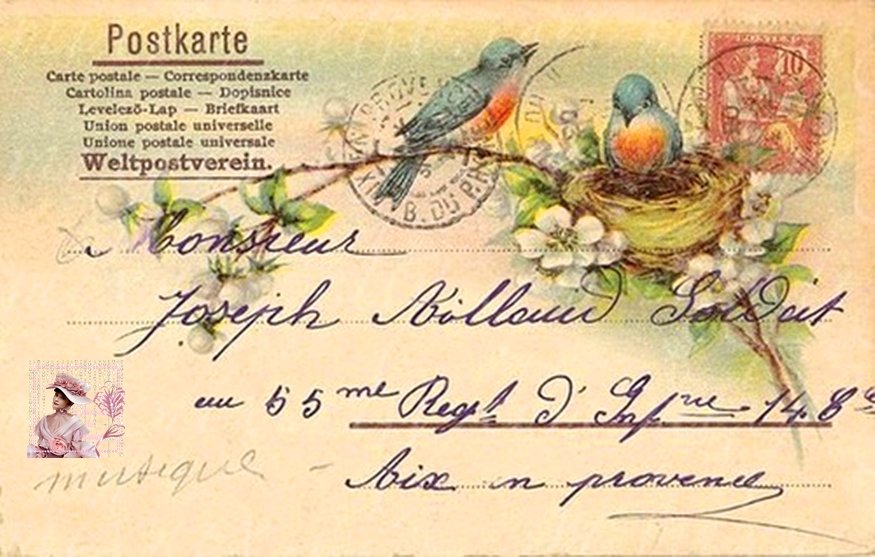 Postkarte
Carte postale — Correspondenzkarte
Cartolina postale — Dopisnice
Levelező-Lap — Briefkaart
Union postale universelle
Unione postale universale
Weltpostverein.
10
B. DU RH
Monsieur
Joseph Soldat
au 55me Regt d'Infrie 14 
Aix en provence
musique